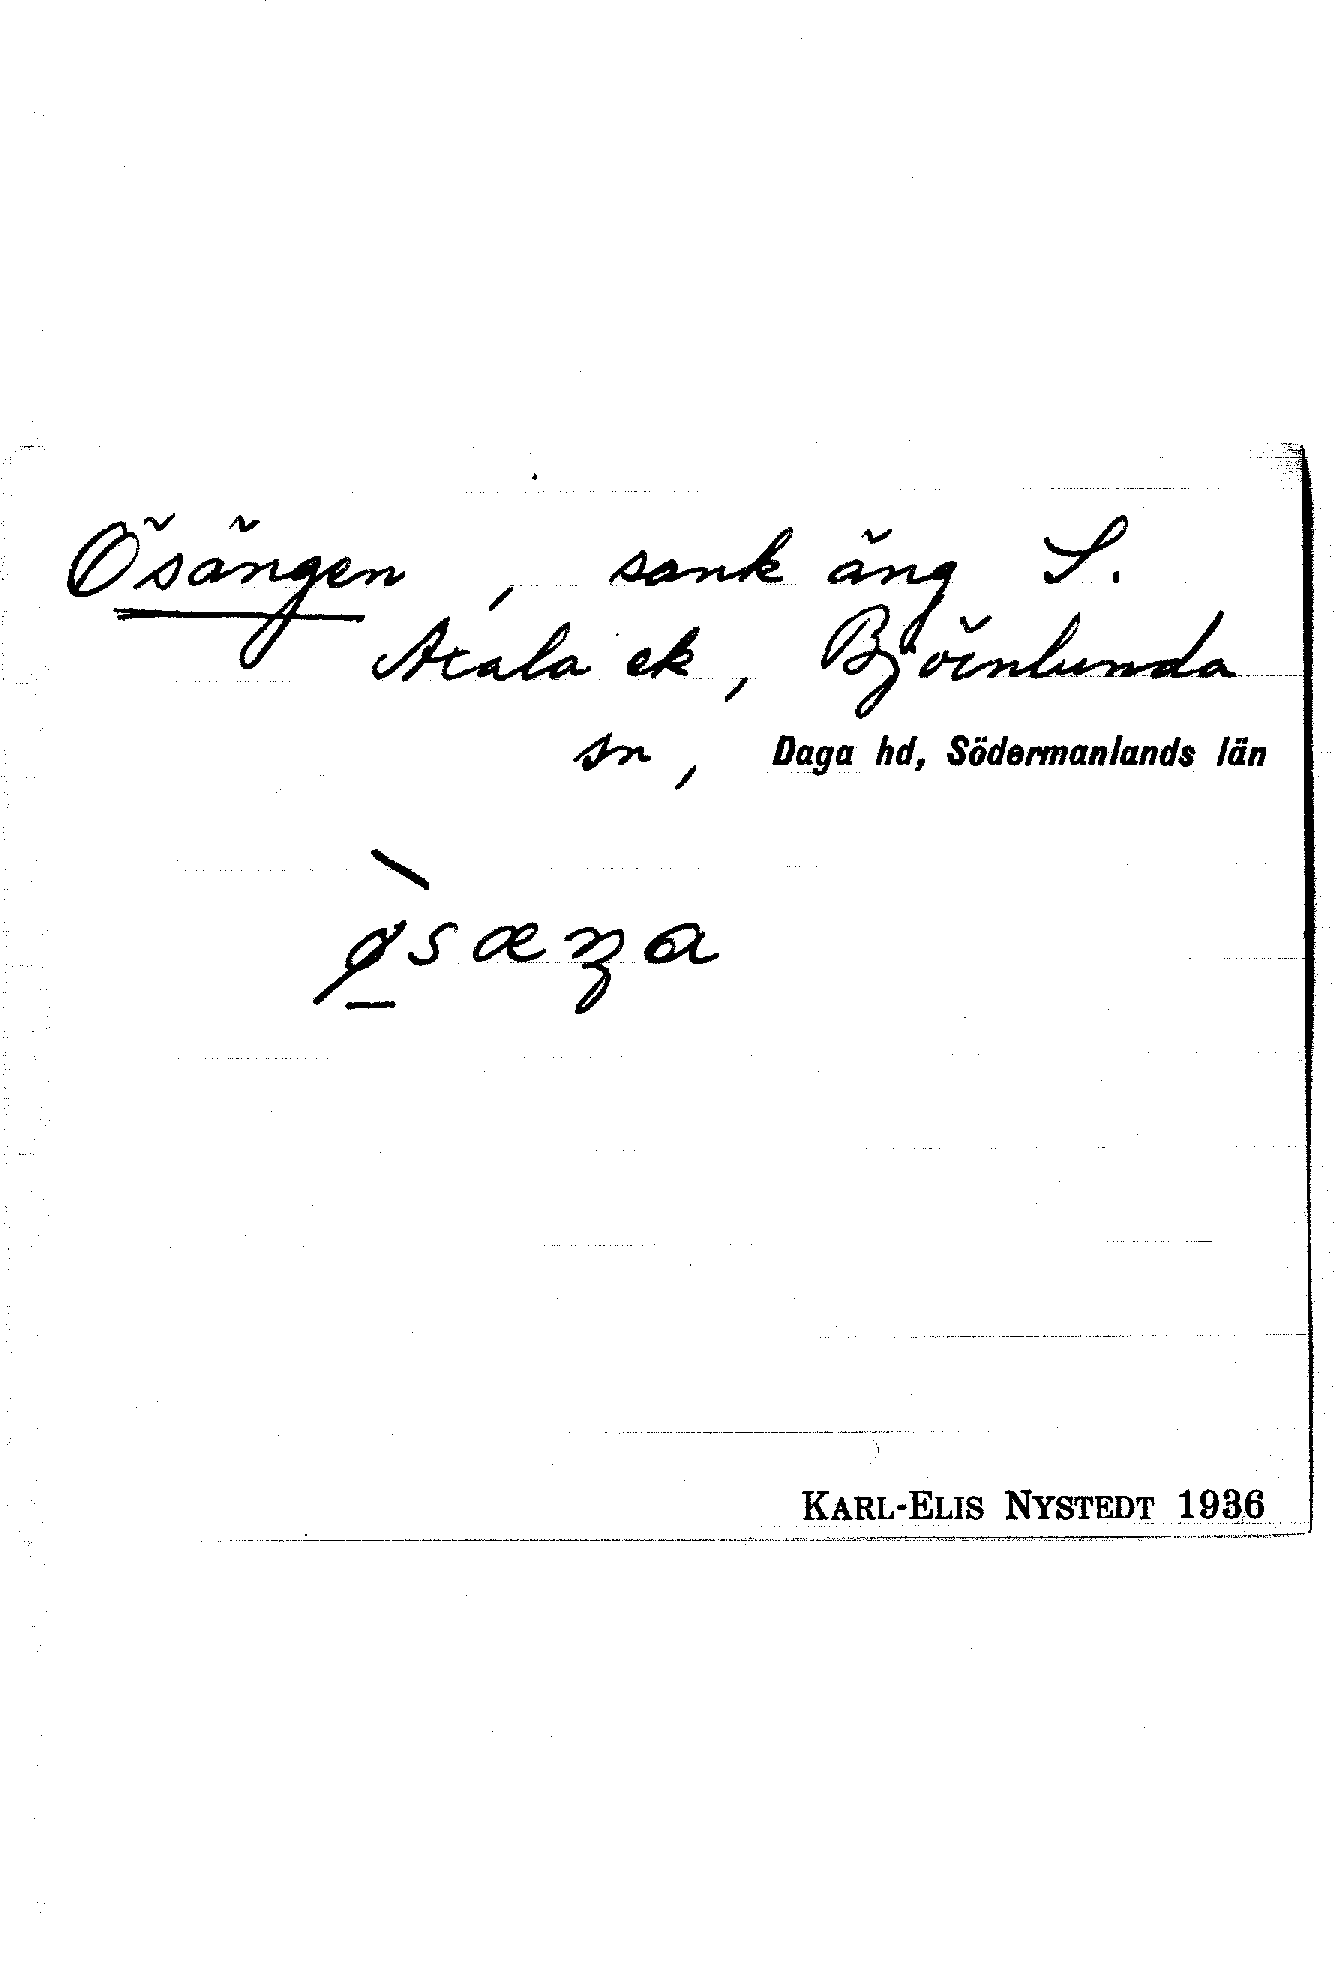 Ösängen, sank äng S.
Axala ek, Björnlunda
sn, Daga hd, Södermanlands län
ø̠̀sæŋa
KARL-ELIS NYSTEDT 1936